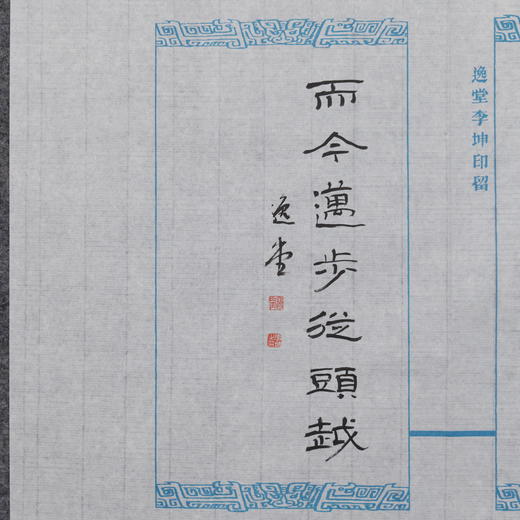 逸堂李坤印留
而今邁步從頭越
逸堂